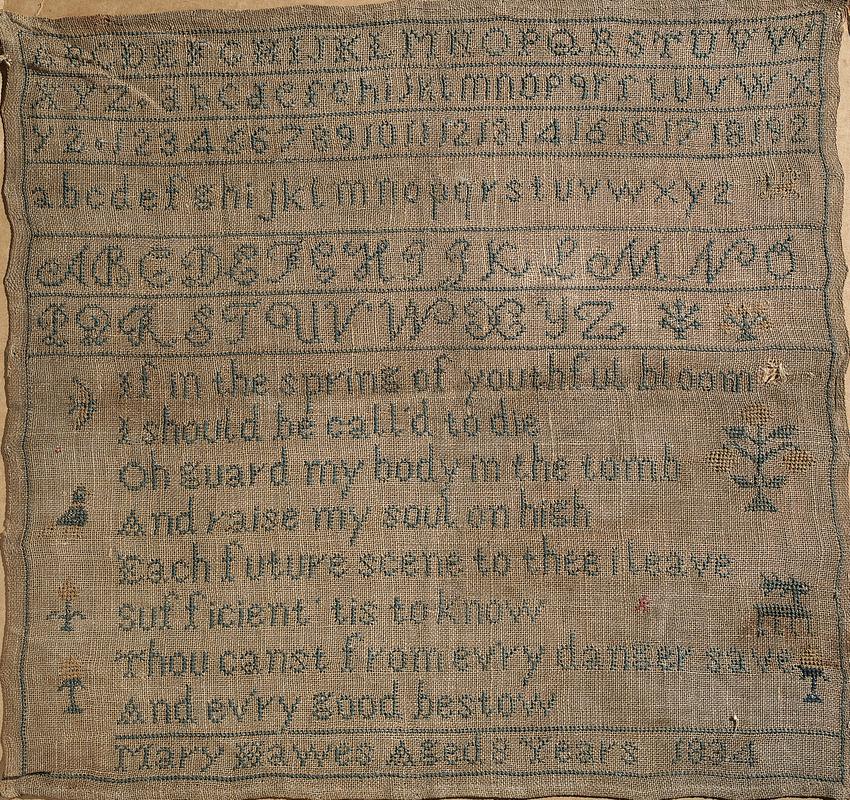 ABCDEFGHIJKLMNOPQRSTUVW
XYZ.abcdefghijklmnopqrſtuvwx
yz.12345678910111213141516171819 2
abcdefghijklmnopqrstuvwxyz
ABCDEFGHIJKLMNO
PQRSTUVWXYZ
If in the spring of youthful bloom
I should be call'd to die
Oh guard my body in the tomb
And raise my soul on high
Each future scene to thee i leave
Sufficient 'tis to know
Thou canst from ev'ry danger save
And ev'ry good bestow
Mary Aged 8 Years 1834